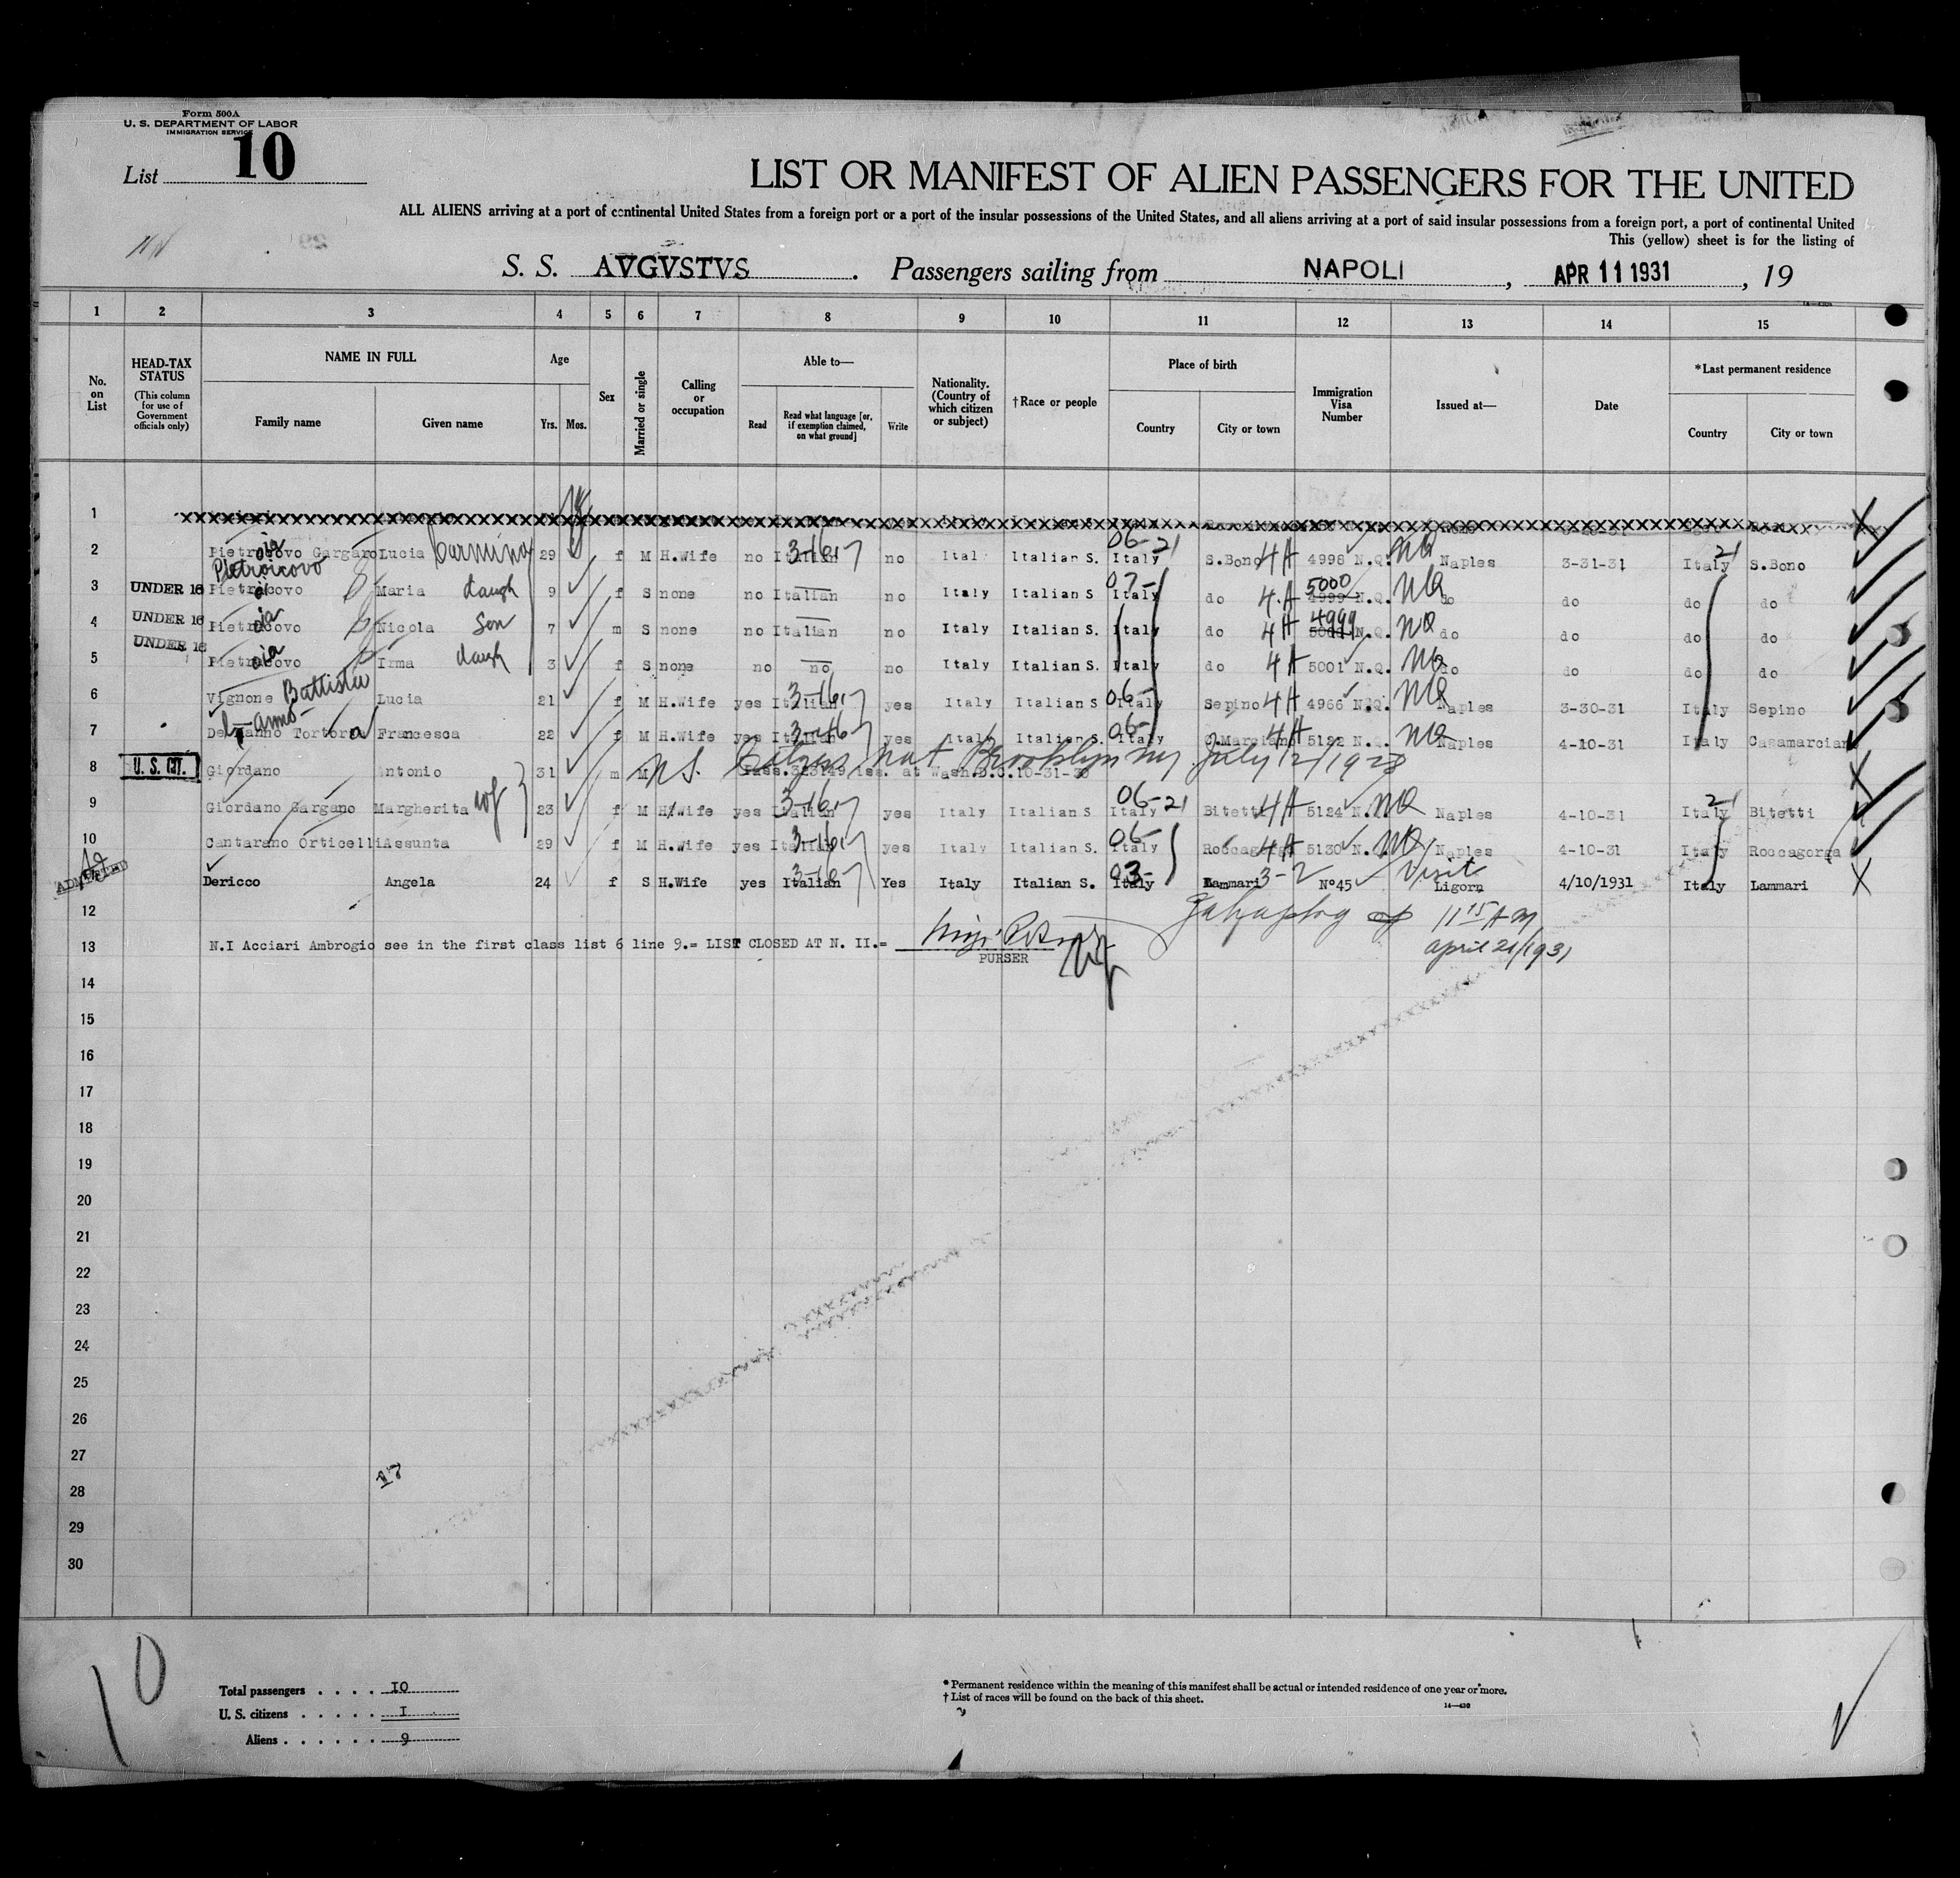 Form 500A
U. S. DEPARTMENT OF LABOR
IMMIGRATION SERVICE
List 10
LIST OR MANIFEST OF ALIEN PASSENGERS FOR THE UNITED
ALL ALIENS arriving at a port of continental United States from a foreign port or a port of the insular possessions of the United States, and all aliens arriving at a port of said insular possessions from a foreign port, a port of continental United
This (yellow) sheet is for the listing of
S. S. AVGVSTVS . Passengers sailing from NAPOLI , APR 11 1931 , 19
1 2 3 4 5 6 7 8 9 10 11 12 13 14 15
No. on List
HEAD-TAX STATUS (This column for use of Government officials only)
NAME IN FULL Family name Given name
Age Yrs. Mos.
Sex
Married or single
Calling or occupation
Able to— Read Read what language [or, if exemption claimed, on what ground] Write
Nationality. (Country of which citizen or subject)
†Race or people
Place of birth Country City or town
Immigration Visa Number
Issued at—
Date
*Last permanent residence Country City or town
1
2 Pietrocovo Gargaro Lucia Carmina 29 f M H.Wife no Italian 3-16-17 no Ital Italian S. 06-21 Italy S.Bono 4A 4998 N.Q. NQ Naples 3-31-31 21 Italy S.Bono
Pietroicovo
3 UNDER 16 Maria daugh 9 f S none no Italian no Italy Italian S 07- Italy do 4A 5000 4999 N.Q. NQ do do do do
4 UNDER 16 Nicola Son 7 m S none no Italian no Italy Italian S. Italy do 4A 4999 N.Q. NQ do do do do
5 UNDER 16 Irma daugh 3 f S none no no no Italy Italian S. Italy do 4A 5001 N.Q. NQ do do do do
6 Vignone Battista Lucia 21 f M H.Wife yes Italian 3-16-17 yes Italy Italian S 06- Italy Sepino 4A 4966 N.Q. NQ Naples 3-30-31 Italy Sepino
7 Tortora Francesca 22 f M H.Wife yes Italian 3-16-17 yes Italy Italian S. 06- Italy 4A 5122 N.Q. NQ Naples 4-10-31 Italy Casamarciano
8 U. S. CIT. Giordano Antonio 31 m M U.S. Citizen Nat Brooklyn NY July 12/1928
iss. at Wash.D.C. 10-31-30
9 Giordano Gargano Margherita wf 23 f M H.Wife yes Italian 3-16-17 yes Italy Italian S 06-21 Italy Bitetti 4A 5124 N.Q. NQ Naples 4-10-31 21 Italy Bitetti
10 Cantarano Orticelli Assunta 29 f M H.Wife yes Italian 3-16-17 yes Italy Italian S. 06- Italy Roccagorga 4A 5130 N. NQ Naples 4-10-31 Italy Roccagorga
ADMITTED Dericco Angela 24 f S H.Wife yes Italian 3-16-17 Yes Italy Italian S. 03- Italy Lammari 3-2 Nº45 Visit Ligorn 4/10/1931 Italy Lammari
12 11 15 AM
13 N.I Acciari Ambrogio see in the first class list 6 line 9.= LIST CLOSED AT N. II.= april 21/1931
PURSER
14
15
16
17
18
19
20
21
22
23
24
25
26
27
17
28
29
30
10
Total passengers . . . . 10
U. S. citizens . . . . . I
Aliens . . . . . . 9
* Permanent residence within the meaning of this manifest shall be actual or intended residence of one year or more.
† List of races will be found on the back of this sheet.
14—430